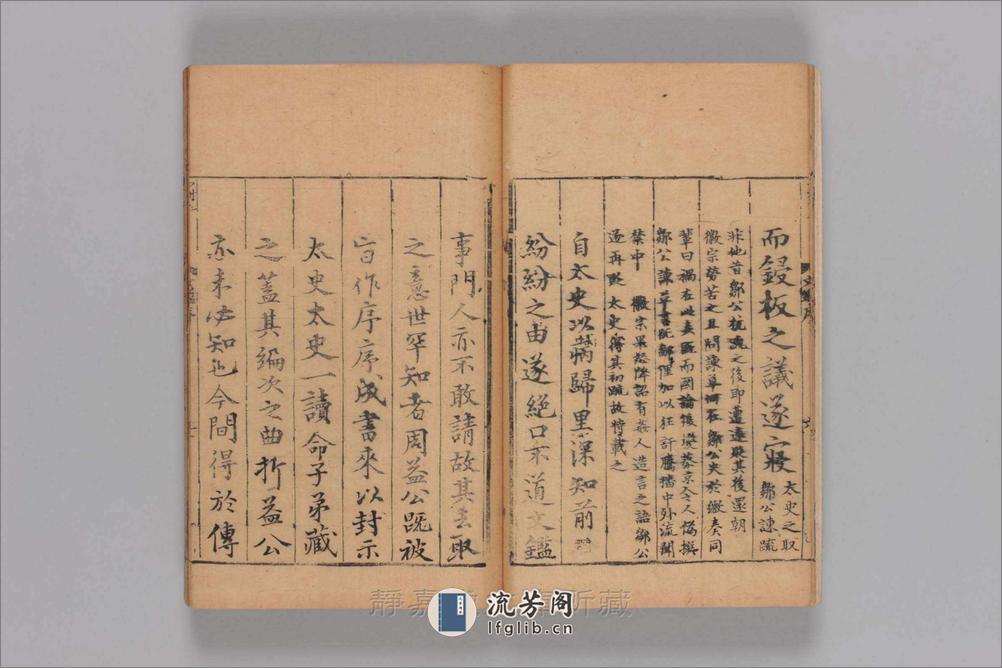 而鋟板之議遂寢太史之取鄒公諫疏
非他昔鄒公抗䟽之後即遭遠竄其後還朝
徽宗勞苦之且問諫草何在鄒公失於繳奏同
輩曰禍在此矣既而國論復變蔡京令人僞撰
鄒公諫草言既鄙俚加以狂訐騰播中外流聞
禁中 徽宗果怒降詔有奸人造言之語鄒公
遂再貶太史得其初疏故特載之
自太史以病歸里深知前
紛紛之由遂絕口不道文鑑
事門人亦不敢請故其去取
之意世罕知者周益公旣被
旨作序序成書來以封示
太史太史一讀命子弟藏
之蓋其編次之曲折益公
亦未必知也今間得於傳
靜嘉 所藏
流芳阁
lfglib.cn